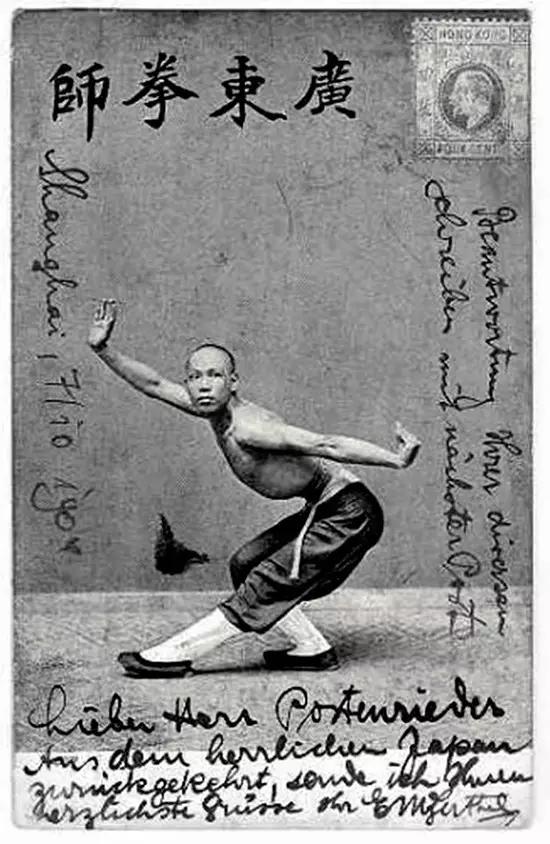 師拳東廣
HONG KONG
FOUR CENT
Shanghai, 7/10 1904
Beantwortung Ihrer diversen
schreiben mit nächster Post
Lieber Herr Postenrieder
Aus dem herrlichen Japan
zurückgekehrt, sende ich Ihnen
herzlichste Grüsse Ihr